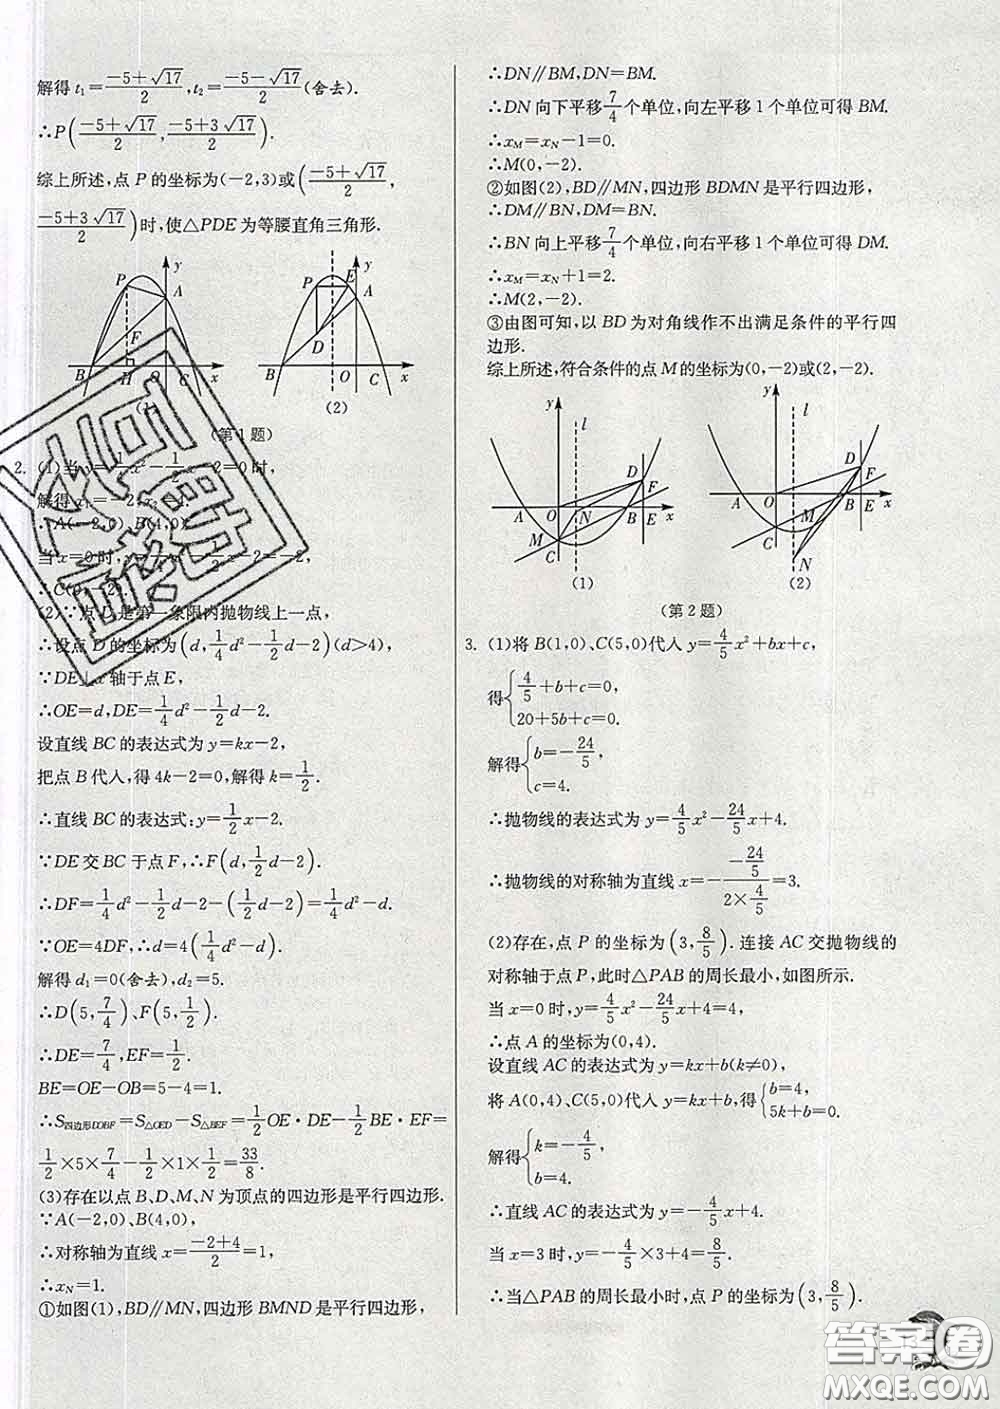 解得 t₁=(-5+√17)/2, t₂=(-5-√17)/2(舍去).
∴P((-5+√17)/2, (-5+3√17)/2).
综上所述,点 P 的坐标为(-2,3)或((-5+√17)/2,
(-5+3√17)/2)时,使△PDE 为等腰直角三角形.
P y E A F D B H O C x
(1) (2)
(第 1 题)
2. (1)当 y=1/4x²-1/2x-2=0 时,
解得 x₁=-2,x₂=4.
∴A(-2,0),B(4,0).
当 x=0 时,
∴C(0,-2).
(2)∵点 D 是第一象限内抛物线上一点,
∴设点 D 的坐标为(d, 1/4d²-1/2d-2)(d>4),
∵DE⊥x 轴于点 E,
∴OE=d,DE=1/4d²-1/2d-2.
设直线 BC 的表达式为 y=kx-2,
把点 B 代人,得 4k-2=0,解得 k=1/2.
∴直线 BC 的表达式:y=1/2x-2.
∵DE 交 BC 于点 F,∴F(d, 1/2d-2).
∴DF=1/4d²-1/2d-2-(1/2d-2)=1/4d²-d.
∵OE=4DF,∴d=4(1/4d²-d).
解得 d₁=0(舍去),d₂=5.
∴D(5, 7/4)、F(5, 1/2).
∴DE=7/4,EF=1/2.
BE=OE-OB=5-4=1.
∴S四边形DOBF=S△OED-S△BEF=1/2OE·DE-1/2BE·EF=
1/2×5×7/4-1/2×1×1/2=33/8.
(3)存在以点 B、D、M、N 为顶点的四边形是平行四边形.
∵A(-2,0)、B(4,0),
∴对称轴为直线 x=(-2+4)/2=1,
∴x_N=1.
①如图(1),BD∥MN,四边形 BMND 是平行四边形,
∴DN∥BM,DN=BM.
∴DN 向下平移 7/4 个单位,向左平移 1 个单位可得 BM.
∴x_M=x_N-1=0.
∴M(0,-2).
②如图(2),BD∥MN,四边形 BDMN 是平行四边形,
∴DM∥BN,DM=BN.
∴BN 向上平移 7/4 个单位,向右平移 1 个单位可得 DM.
∴x_M=x_N+1=2.
∴M(2,-2).
③由图可知,以 BD 为对角线作不出满足条件的平行四
边形.
综上所述,符合条件的点 M 的坐标为(0,-2)或(2,-2).
y l D F A O N B E x M C
(1)
y l D F A O B E x C N
(2)
(第 2 题)
3. (1)将 B(1,0)、C(5,0)代人 y=4/5x²+bx+c,
得{4/5+b+c=0,
20+5b+c=0.
解得{b=-24/5,
c=4.
∴抛物线的表达式为 y=4/5x²-24/5x+4.
∴抛物线的对称轴为直线 x=-(-24/5)/(2×4/5)=3.
(2)存在,点 P 的坐标为(3, 8/5). 连接 AC 交抛物线的
对称轴于点 P,此时△PAB 的周长最小,如图所示.
当 x=0 时,y=4/5x²-24/5x+4=4,
∴点 A 的坐标为(0,4).
设直线 AC 的表达式为 y=kx+b(k≠0),
将 A(0,4)、C(5,0)代人 y=kx+b,得{b=4,
5k+b=0.
解得{k=-4/5,
b=4.
∴直线 AC 的表达式为 y=-4/5x+4.
当 x=3 时,y=-4/5×3+4=8/5.
∴当△PAB 的周长最小时,点 P 的坐标为(3, 8/5).
答案圈
MXQE.COM